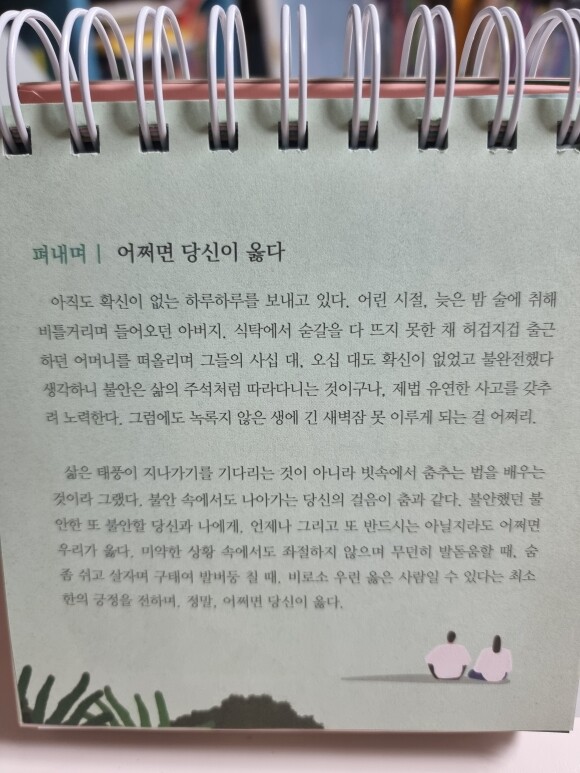 펴내며 | 어쩌면 당신이 옳다
아직도 확신이 없는 하루하루를 보내고 있다. 어린 시절, 늦은 밤 술에 취해
비틀거리며 들어오던 아버지. 식탁에서 숟갈을 다 뜨지 못한 채 허겁지겁 출근
하던 어머니를 떠올리며 그들의 사십 대, 오십 대도 확신이 없었고 불완전했다
생각하니 불안은 삶의 주석처럼 따라다니는 것이구나, 제법 유연한 사고를 갖추
려 노력한다. 그럼에도 녹록지 않은 생에 긴 새벽잠 못 이루게 되는 걸 어쩌리.
삶은 태풍이 지나가기를 기다리는 것이 아니라 빗속에서 춤추는 법을 배우는
것이라 그랬다. 불안 속에서도 나아가는 당신의 걸음이 춤과 같다. 불안했던 불
안한 또 불안할 당신과 나에게, 언제나 그리고 또 반드시는 아닐지라도 어쩌면
우리가 옳다. 미약한 상황 속에서도 좌절하지 않으며 무던히 발돋움할 때, 숨
좀 쉬고 살자며 구태여 발버둥 칠 때, 비로소 우린 옳은 사람일 수 있다는 최소
한의 긍정을 전하며. 정말, 어쩌면 당신이 옳다.